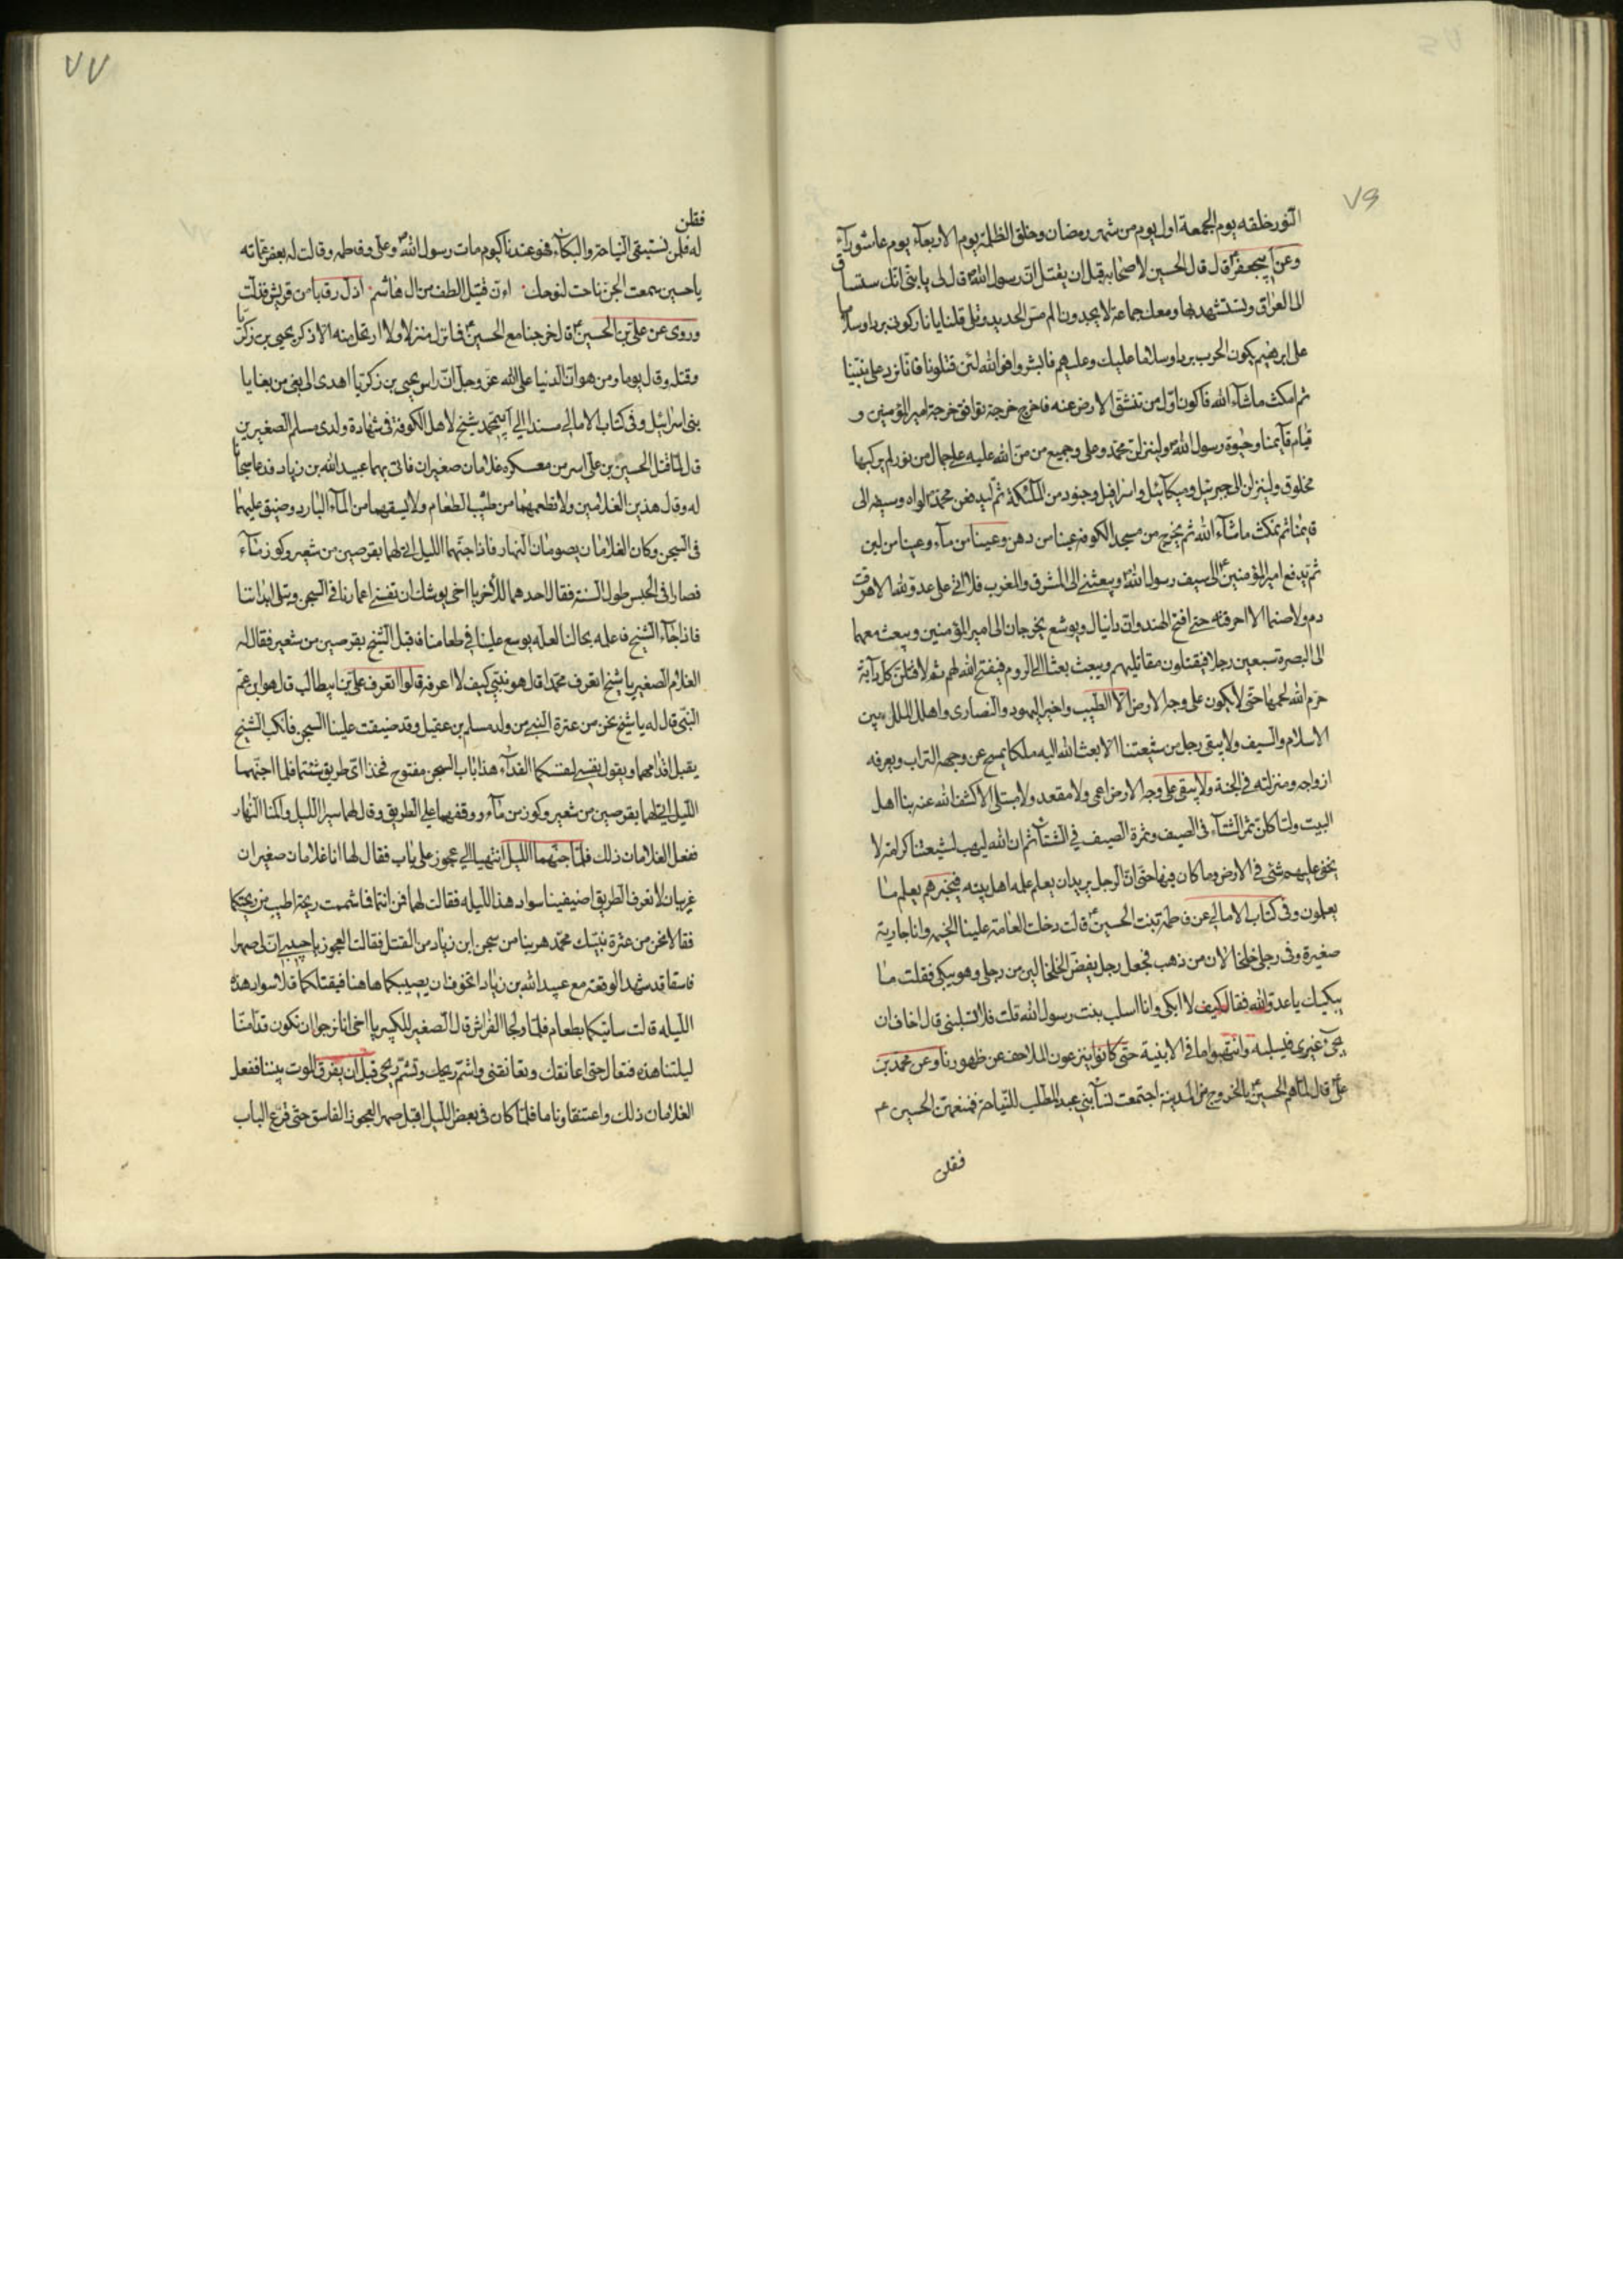 ٧٦
النور خلقه يوم الجمعة اول يوم من شهر رمضان وخلق الظلمة يوم الاربعاء يوم عاشوراء
وعن ابيجعفر ع قال قال الحسين لاصحابه قبل ان يقتل ان رسول الله ص قال لى يا بنى انك ستساق
الى العراق وتستشهد بها ومعك جماعة لا يجدون الم مس الحديد وتلى قلنا يا نار كونى بردا وسلاما
على ابرهيم يكون الحرب بردا وسلاما عليك وعليهم فابشروا فوالله لئن قتلونا فانا نرد على نبينا
ثم امكث ما شاء الله فاكون اول من تنشق الارض عنه فاخرج خرجة توافق خرجة امير المؤمنين و
قيام قائمنا وحيوة رسول الله ص ولينزلن محمد وعلى وجميع من من الله عليه على جمال من نور لم يركبها
مخلوق ولينزلن الى جبرئيل وميكائيل واسرافيل وجنود من الملئكة ثم ليدفعن محمد ص لواه وسيفه الى
قائمنا ثم نمكث ما شاء الله ثم يخرج من مسجد الكوفه عينا من دهن وعينا من ماء وعينا من لبن
ثم يدفع امير المؤمنين ع الى سيف رسول الله ص ويبعثنى الى المشرق والمغرب فلا اتى على عدو لله الا هرقت
دم ولا صنما الا احرقته حتى افتح الهند وان دانيال ويوشع يخرجان الى امير المؤمنين ويبعث معهما
الى البصرة سبعين رجلا فيقتلون مقاتليهم ويبعث بعثا الى الروم فيفتح الله لهم ثم لاقتلن كل دابة
حرم الله لحمها حتى لا يكون على وجه الارض الا الطيب واخير اليهود والنصارى واهل الملل بين
الاسلام والسيف ولا يبقى رجل من شيعتنا الا بعث الله اليه ملكا يمسح عن وجهه التراب ويعرفه
ازواجه ومنزلته فى الجنة ولا يبقى على وجه الارض اعمى ولا مقعد ولا مبتلى الا كشف الله عنه بنا اهل
البيت ولتاكلن ثمر الشتاء فى الصيف وثمرة الصيف فى الشتاء ثم ان الله ليهب لشيعتنا كرامة لا
يخفى عليهم شئ فى الارض وما كان فيها حتى ان الرجل يريد ان يعلم علم اهل بيته فيخبرهم بعلم ما
يعلمون وفى كتاب الامالى عن فاطمة بنت الحسين ع قالت دخلت العامة علينا الخيمه وانا جارية
صغيرة وفى رجلى خلخالان من ذهب فجعل رجل يفض الخلخالين من رجلى وهو يبكى فقلت ما
يبكيك يا عدو الله فقال كيف لا ابكى وانا اسلب بنت رسول الله قلت فلا تسلبنى قال اخاف ان
يجئ غيرى فيسلبه وانتهبوا ما فى الابنية حتى كانوا ينزعون الملاحف عن ظهورنا وعن محمد بن
على ع قال لما هم الحسين ع بالخروج من المدينة اجتمعت نساء بنى عبد المطلب للنياحة فمنعهن الحسين ع
فقلن
٧٧
فقلن
له فلمن نستبقى النياحة والبكاء فهو عندنا كيوم مات رسول الله ص وعلى وفاطمه وقالت له بعض عماته
يا حسين سمعت الجن ناحت لنوحك وان قتيل الطف من ال هاشم اذل رقابا من قريش فذلت
وروى عن على بن الحسين ع قال خرجنا مع الحسين ع فما نزل منزلا ولا ارتحل منه الا ذكر يحيى بن زكريا
وقتله وقال يوما ومن هوان الدنيا على الله عز وجل ان راس يحيى بن زكريا اهدى الى بغى من بغايا
بنى اسرائيل وفى كتاب الامالى مسندا الى ابيمحمد شيخ لاهل الكوفة فى شهادة ولدى مسلم الصغيرين
قال لما قتل الحسين بن على اسر من معسكره غلامان صغيران فاتى بهما عبيد الله بن زياد فدعا سجانا
له وقال هذين الغلامين ولا تطعمهما من طيب الطعام ولا تسقهما من الماء البارد وضيق عليهما
فى السجن وكان الغلامان يصومان النهار فاذا جنهما الليل اتى لهما بقرصين من شعير وكوز ماء
فصارا فى الحبس طول السنة فقال احدهما للأخر يا اخى يوشك ان تفنى اعمارنا فى السجن وتبلى ابداننا
فاذا جاء الشيخ فاعلمه بحالنا لعله يوسع علينا فى طعامنا فاقبل الشيخ بقرصين من شعير فقال له
الغلام الصغير يا شيخ اتعرف محمدا قال هو نبيى كيف لا اعرفه قالوا اتعرف على بن ابيطالب قال هو ابن عم
النبى قال له يا شيخ نحن من عترة النبى من ولد مسلم بن عقيل وقد ضيقت علينا السجن فانكب الشيخ
يقبل اقدامهما ويقول نفسى لنفسكما الفداء هذا باب السجن مفتوح فخذا اى طريق شئتما فلما اجنهما
الليل اتى لهما بقرصين من شعير وكوز من ماء ووقفهما على الطريق وقال لهما سيرا الليل واكمنا النهار
ففعل الغلامان ذلك فلما جنهما الليل انتهيا الى عجوز على باب فقال لها انا غلامان صغيران
غريبان لا نعرف الطريق اضيفينا سواد هذا الليله فقالت لهما فمن انتما فما شممت ريحة اطيب من ريحتكما
فقالا نحن من عترة نبيك محمد هربنا من سجن ابن زياد من القتل فقالت العجوز يا حبيبى ان لى صهرا
فاسقا قد شهد الوقعة مع عبيد الله بن زياد اتخوف ان يصيبكما هاهنا فيقتلكما قالا سواد هذه
الليله قالت ساتيكما بطعام فلما ولجا الفراش قال الصغير للكبير يا اخى انا نرجوا ان نكون قد امنا
ليلتنا هذه فتعال حتى اعانقك وتعانقنى واشم ريحك وتشم ريحى قبل ان يفرق الموت بيننا ففعل
الغلامان ذلك واعتنقا وناما فلما كان فى بعض الليل اقبل صهر العجوز الفاسق حتى قرع الباب